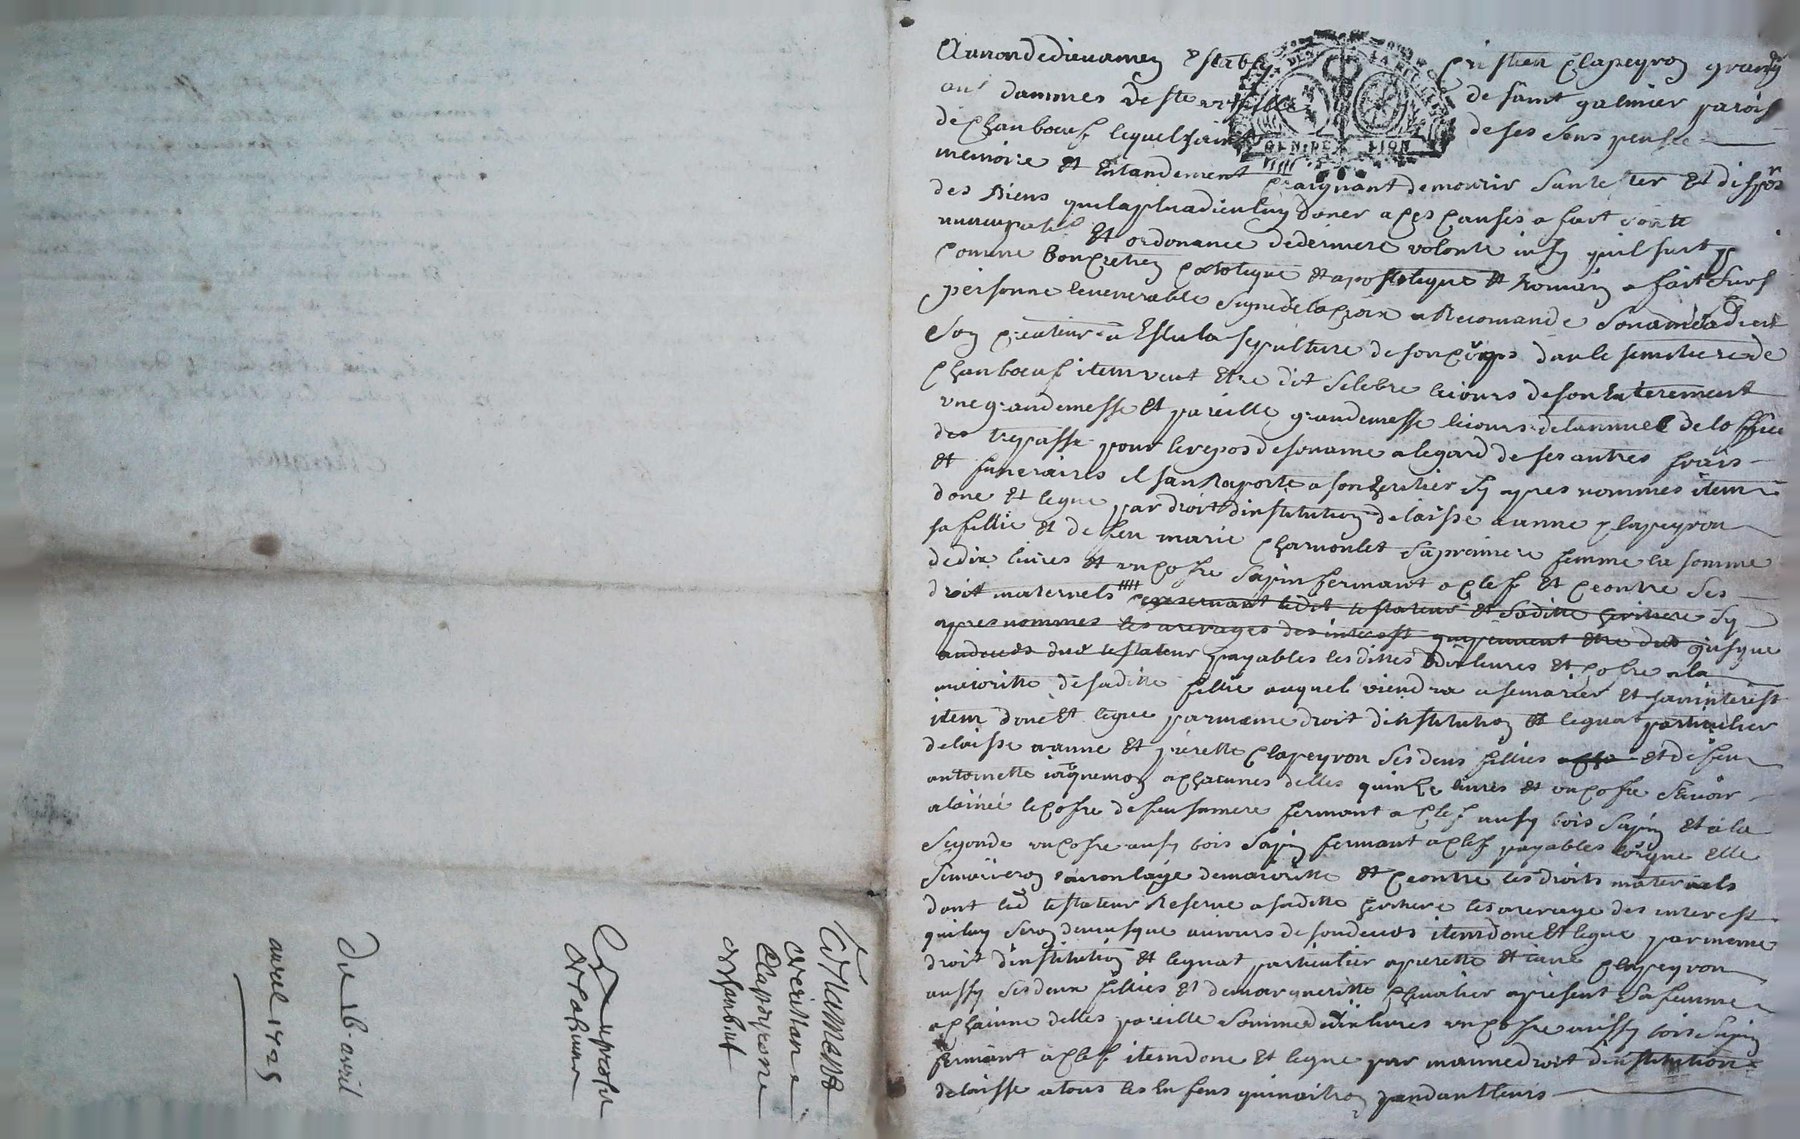 Au non de dieu amen Estably Cristien Clapeyron grang
aus dammes de ste ursulle de saint galmier parois
de Chanboeuf lequel sain de ses sens pensee
memoire et Entandement Craignant de mourir sans tester Et dispos
des Biens quil a plu a dieu luy doner a ces Causes a fait son te
nuncupatif Et ordonance de derniere volonte insy quil suit
comme bon Cretien Catolique et apostolique et Romain a fait sur sa
personne le venerable signe de la Croix a Recomande son ame a dieu
son Createur a Eslu la sepulture de son Corps dan le simetiere de
Chanboeuf item veut Etre dit selebre le iours de son Enterement
une grande messe Et pareille grande messe le iours de lannuel de loffice
des trepasse pour le repos de son ame a legard de ses autres frais
et funeraires il san Raporte a son heritier sy apres nommes item
done et legue par droit dinstitution delaisse a anne Clapeyron
sa fillie et de feu marie Charvonlet sa premiere femme la somme
de dix livres et un Cofre sapin fermant a Clef Et Contre ses
droit maternels Reservant ledit testateur Et saditte heritiere sy
apres nommes les arerages des interest qui peuvent etre dus jusque
au deceds dud testateur payables les dittes dix livres et Cofre a la
maioritte de saditte fillie auquel viendra a se marier et san interist
item done Et legue par meme droit dinstitution et leguat particulier
delaisse a anne Et pierette Clapeyron ses deus fillies et de feu
antoinette iaquemon a Chacunes delles quinze livres et un Cofre scavoir
a lainée le Cofre de feu sa mere fermant a Clef aussy bois sapin Et a la
segonde un Cofre aussy bois sapin fermant a Clef payables lorsque Elle
se marieron ou auron lage de maioritte et Contre les droits maternels
dont led testateur Reserve a saditte heritiere les arerage des interest
qui luy seron deu iusque au iours de son deceds item done Et legue par meme
droit dinstitution et leguat particulier a pierette et iane Clapeyron
aussy ses deux fillies Et de margueritte Chevalier a present sa femme
a Chaiunne delles pareille somme de dix livres un Cofre aussy bois sapin
fermant a Clef item done Et legue par meme droit dinstitution
delaisse a tous les Enfens qui naitron pandant leurs
Testament
de Cristian
Clapeyrone
Du 16 avril
avril 1725
GEN DE LION